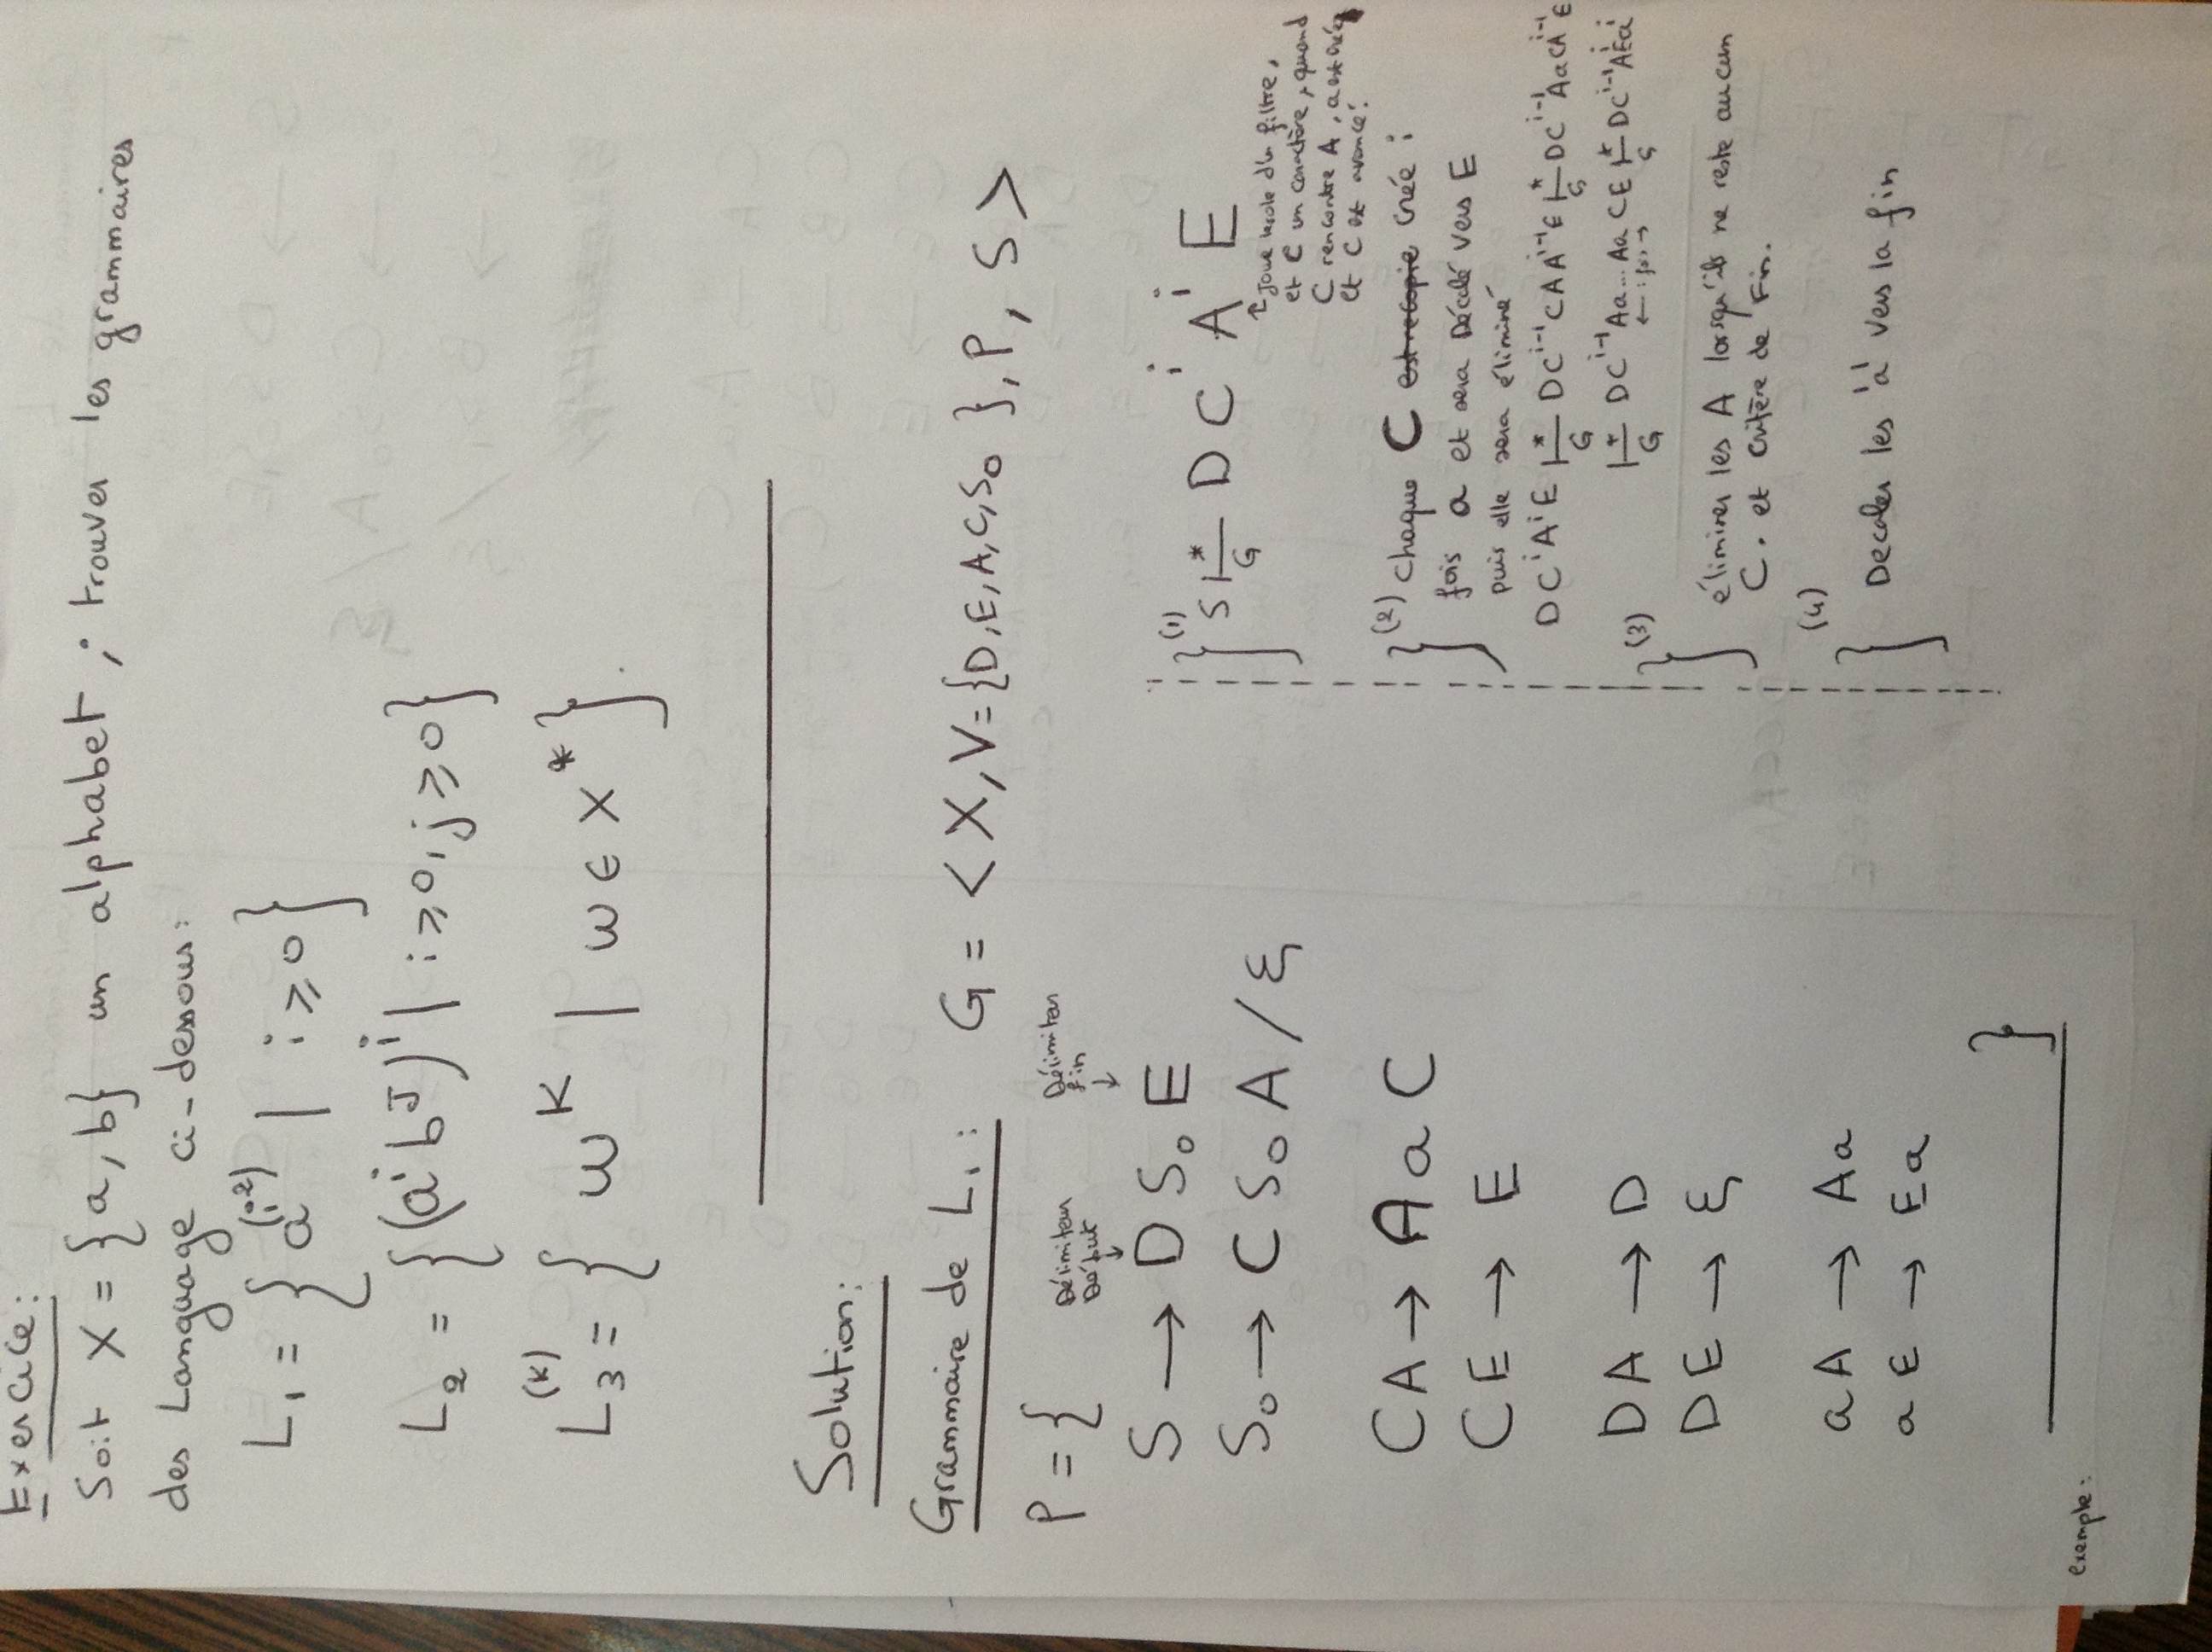 Exercice:
Soit X = {a, b} un alphabet ; trouver les grammaires
des Language ci-dessous:
L₁ = { a^(i²) | i ≥ 0 }
L₂ = { (a^i b^J)^i | i ≥ 0, j ≥ 0 }
L₃^(K) = { w^K | w ∈ X* }.
Solution:
Grammaire de L₁ : G = < X, V = {D, E, A, C, S₀ }, P, S >
P = {
Délimiteur Début ↓
Délimiteur fin ↓
S → D S₀ E
S₀ → C S₀ A / ξ
CA → A a C
CE → E
DA → D
DE → ξ
aA → Aa
aE → Ea
}
exemple :
(1) S ⊢*_G D C^i A^i E
↑ Joue le role d'un filtre,
et C un caractère, quand
C rencontre A, a est créé
et C est avancé.
(2) Chaque C est recopie Crée i
fois a et sera Décalé vers E
puis elle sera éliminé
D C^i A^i E ⊢*_G D C^i-1 C A A^i-1 E ⊢*_G D C^i-1 A a C A^i-1 E
⊢*_G D C^i-1 Aa...Aa CE ⊢*_G D C^i-1 A^i E a^i
← i fois →
(3)
éliminer les A lorsqu'ils ne reste aucun
C. et Critère de Fin.
(4)
Decaler les 'a' vers la fin